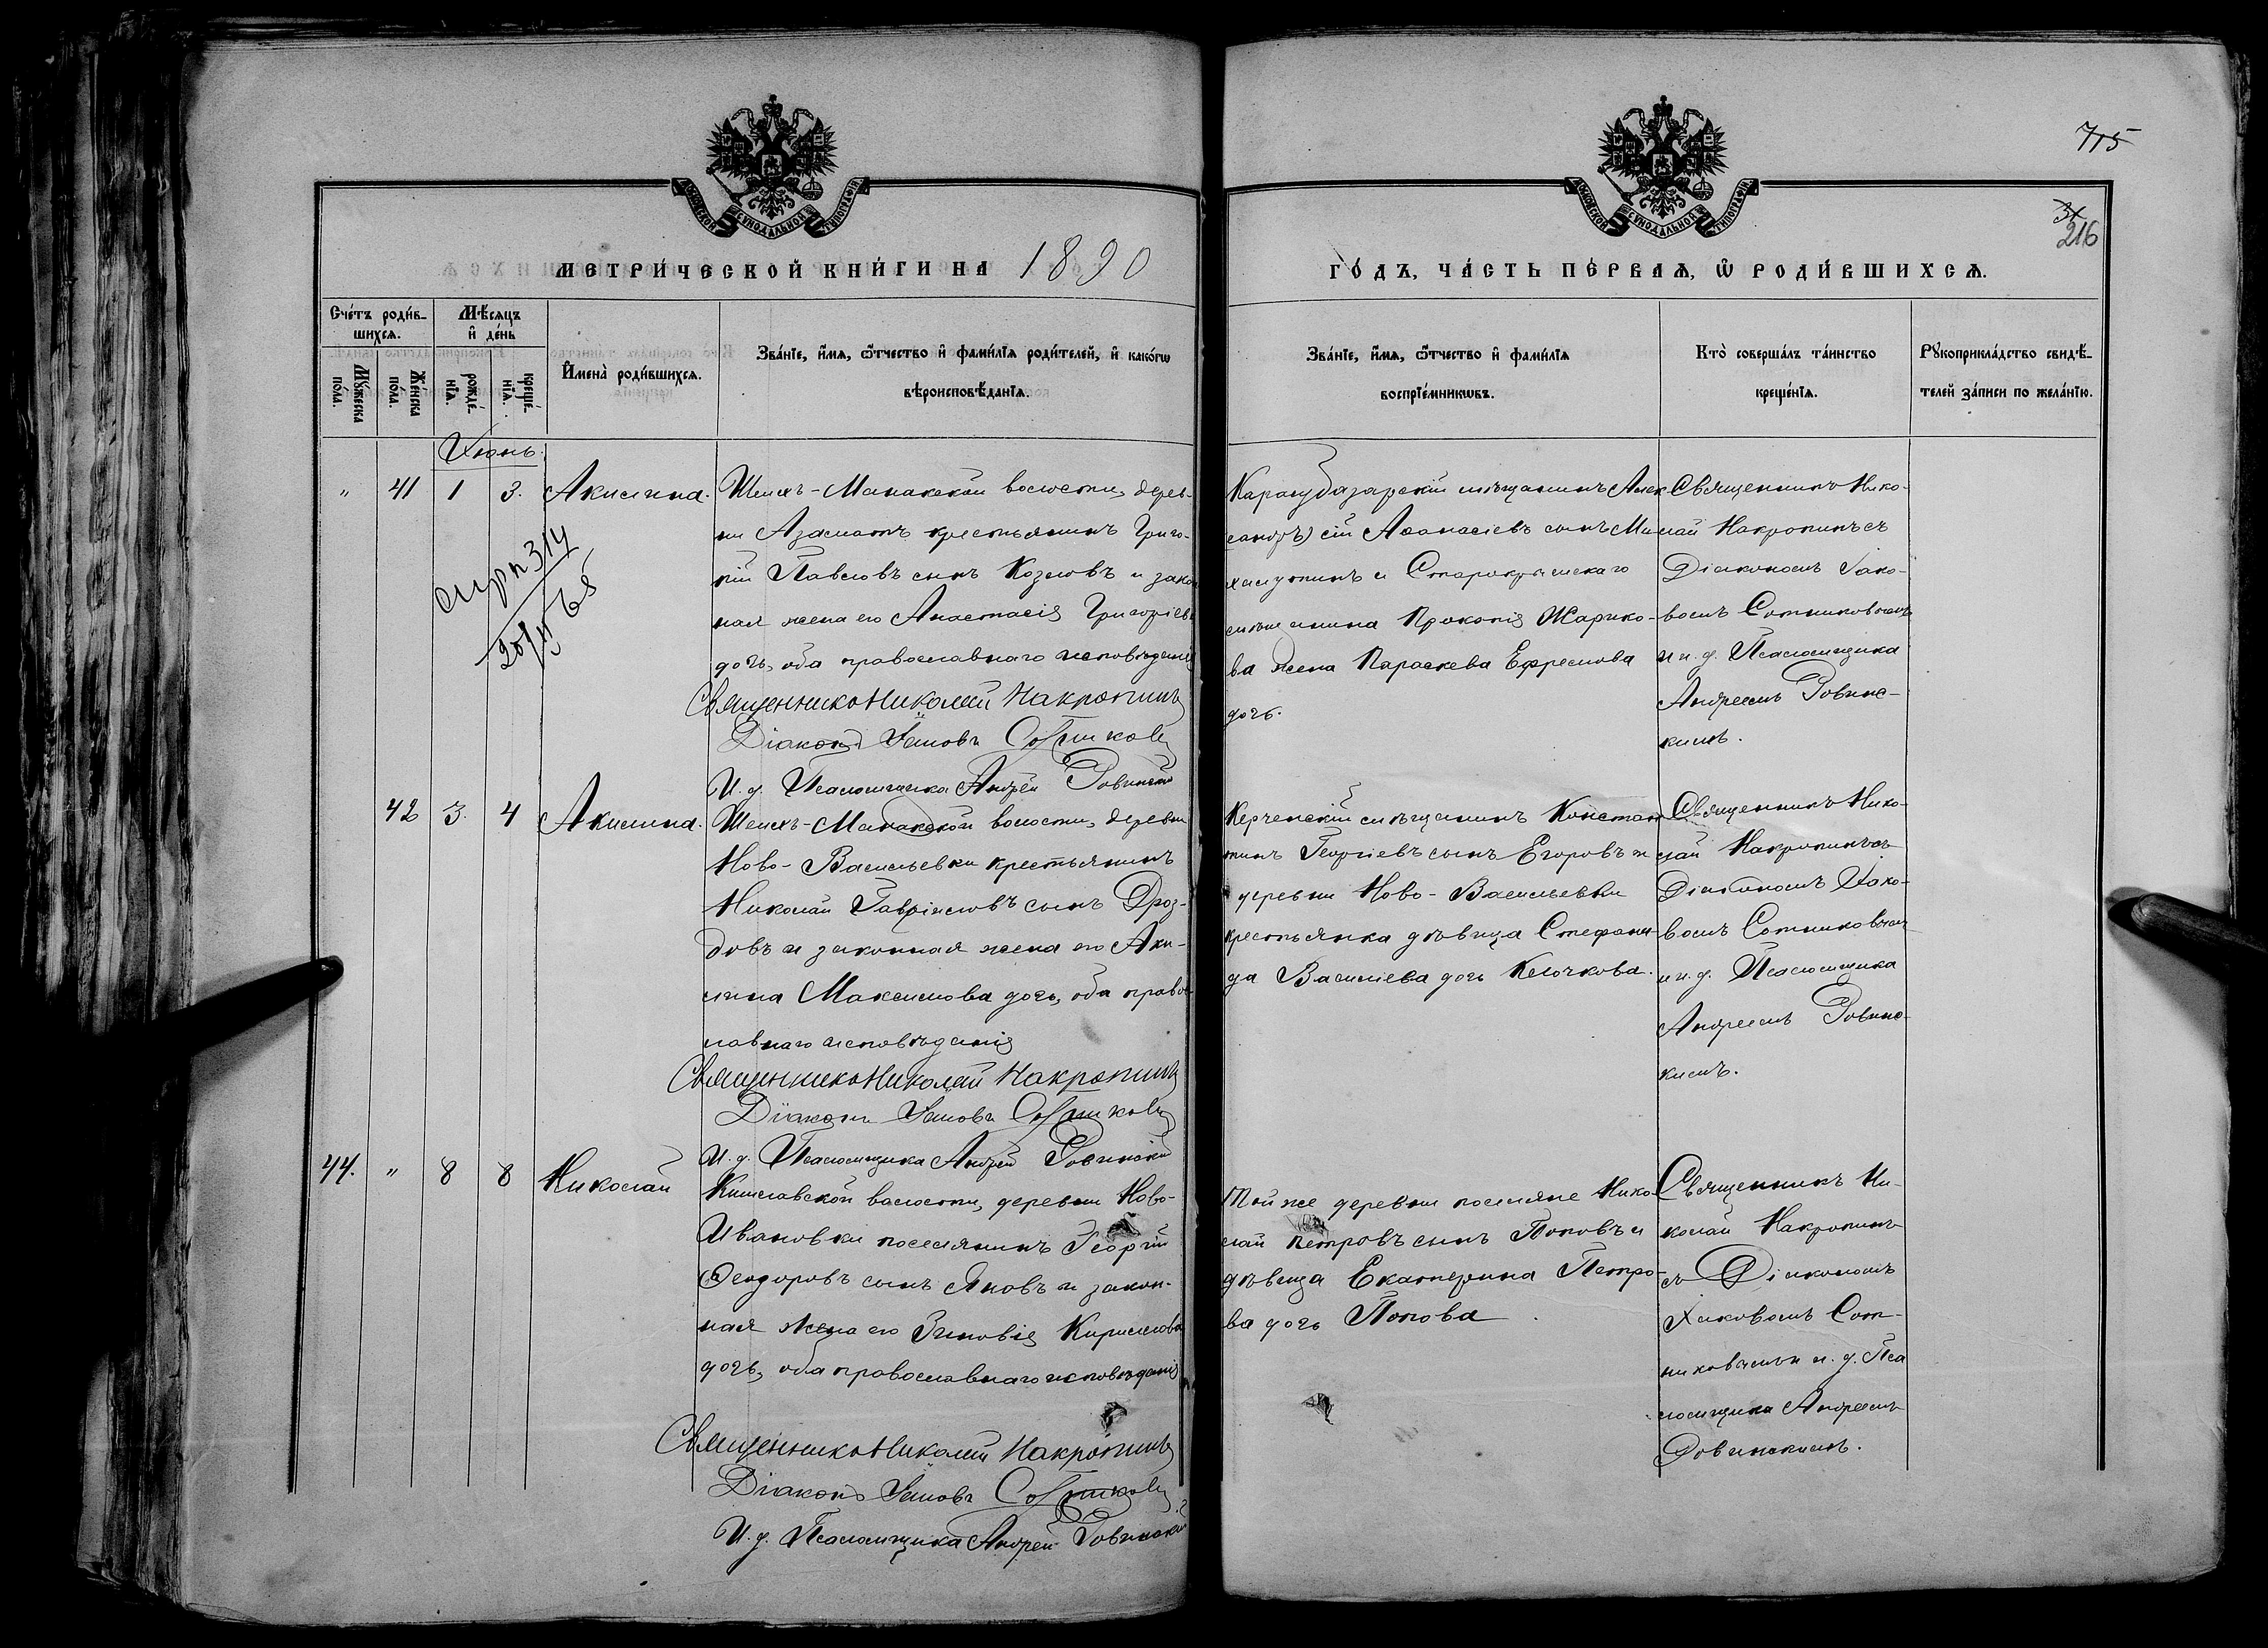 715
31
216
МОСКОВСКОЙ СѴНОДАЛЬНОЙ ТИПОГРАФІИ
МОСКОВСКОЙ СѴНОДАЛЬНОЙ ТИПОГРАФІИ
МЕТРИ́ЧЕСКОЙ КНИ́ГИ НА 1890
ГО́ДЪ, ЧА́СТЬ ПЕ́РВАѦ, Ѽ РОДИ́ВШИХСѦ.
Сче́тъ роди́в-
шихсѧ.
Мꙋ́жеска по́ла.
Же́нска по́ла.
Мѣ́сѧцъ
и҆ де́нь
рожде́-
нїѧ.
креще́-
нїѧ.
И҆мена̀ роди́вшихсѧ.
Зва́нїе, и҆́мѧ, ѻ҆́тчество и҆ фами́лїѧ роди́телей, и҆ како́гѡ
вѣроисповѣ́данїѧ.
Зва́нїе, и҆́мѧ, ѻ҆́тчество и҆ фами́лїѧ
воспрїе́мникѡвъ.
Кто̀ соверша́лъ та́инство
креще́нїѧ.
Рꙋкоприкла́дство свидѣ́-
телей за́писи по жела́нїю.
Іюнь.
" 41 1 3. Акилина.
Шейхъ-Манакской волости, дерев-
ни Азаматъ крестьянинъ Григо-
рій Павловъ сынъ Козловъ и закон
ная жена его Анастасія Григоріева
дочь, оба православнаго исповѣданія
Священникъ Николай Накропинъ
Діаконъ Іаковъ Сотниковъ
И. д. Псаломщика Андрей Ровинскій
Карасубазарскій мѣщанинъ Алек
сандръ) сій Аѳанасіевъ сынъ Ми
хаилутинъ и Старокрымскаго
мѣщанина Прокопія Жарико-
ва жена Параскева Ефремова
дочь.
Священникъ Нико-
лай Накропинъ съ
Діакономъ Іако-
вомъ Сотниковымъ
и и. д. Псаломщика
Андреемъ Ровинс-
кимъ.
42 3. 4 Акилина.
Шейхъ-Манакской волости, деревни
Ново-Васильевки крестьянинъ
Николай Гавріиловъ сынъ Дроз-
довъ и законная жена его Аки-
лина Максимова дочь, оба правос
лавнаго исповѣданія
Священникъ Николай Накропинъ
Діаконъ Іаковъ Сотниковъ
И. д. Псаломщика Андрей Ровинскій
Керченскій мѣщанинъ Констан
тинъ Георгіевъ сынъ Егоровъ и
деревни Ново-Васильевки
крестьянка дѣвица Стефани-
да Василіева дочь Клочкова.
Священникъ Нико-
лай Накропинъ съ
Діакономъ Іако-
вомъ Сотниковымъ
и и. д. Псаломщика
Андреемъ Ровинс-
кимъ.
44. " 8 8 Николай
Кишлавской волости, деревни Ново-
Ивановки поселянинъ Георгій
Ѳеодоровъ сынъ Яновъ и закон-
ная жена его Зиновія Кириллова
дочь, оба православнаго исповѣданія
Священникъ Николай Накропинъ
Діаконъ Іаковъ Сотниковъ
И. д. Псаломщика Андрей Ровинскій
Той же деревни поселяне Нико-
лай Петровъ сынъ Поповъ и
дѣвица Екатерина Петро-
ва дочь Попова
Священникъ Ни-
колай Накропинъ
съ Діакономъ
Іаковомъ Сот-
никовымъ и и. д. Пса
ломщика Андреемъ
Ровинскимъ.